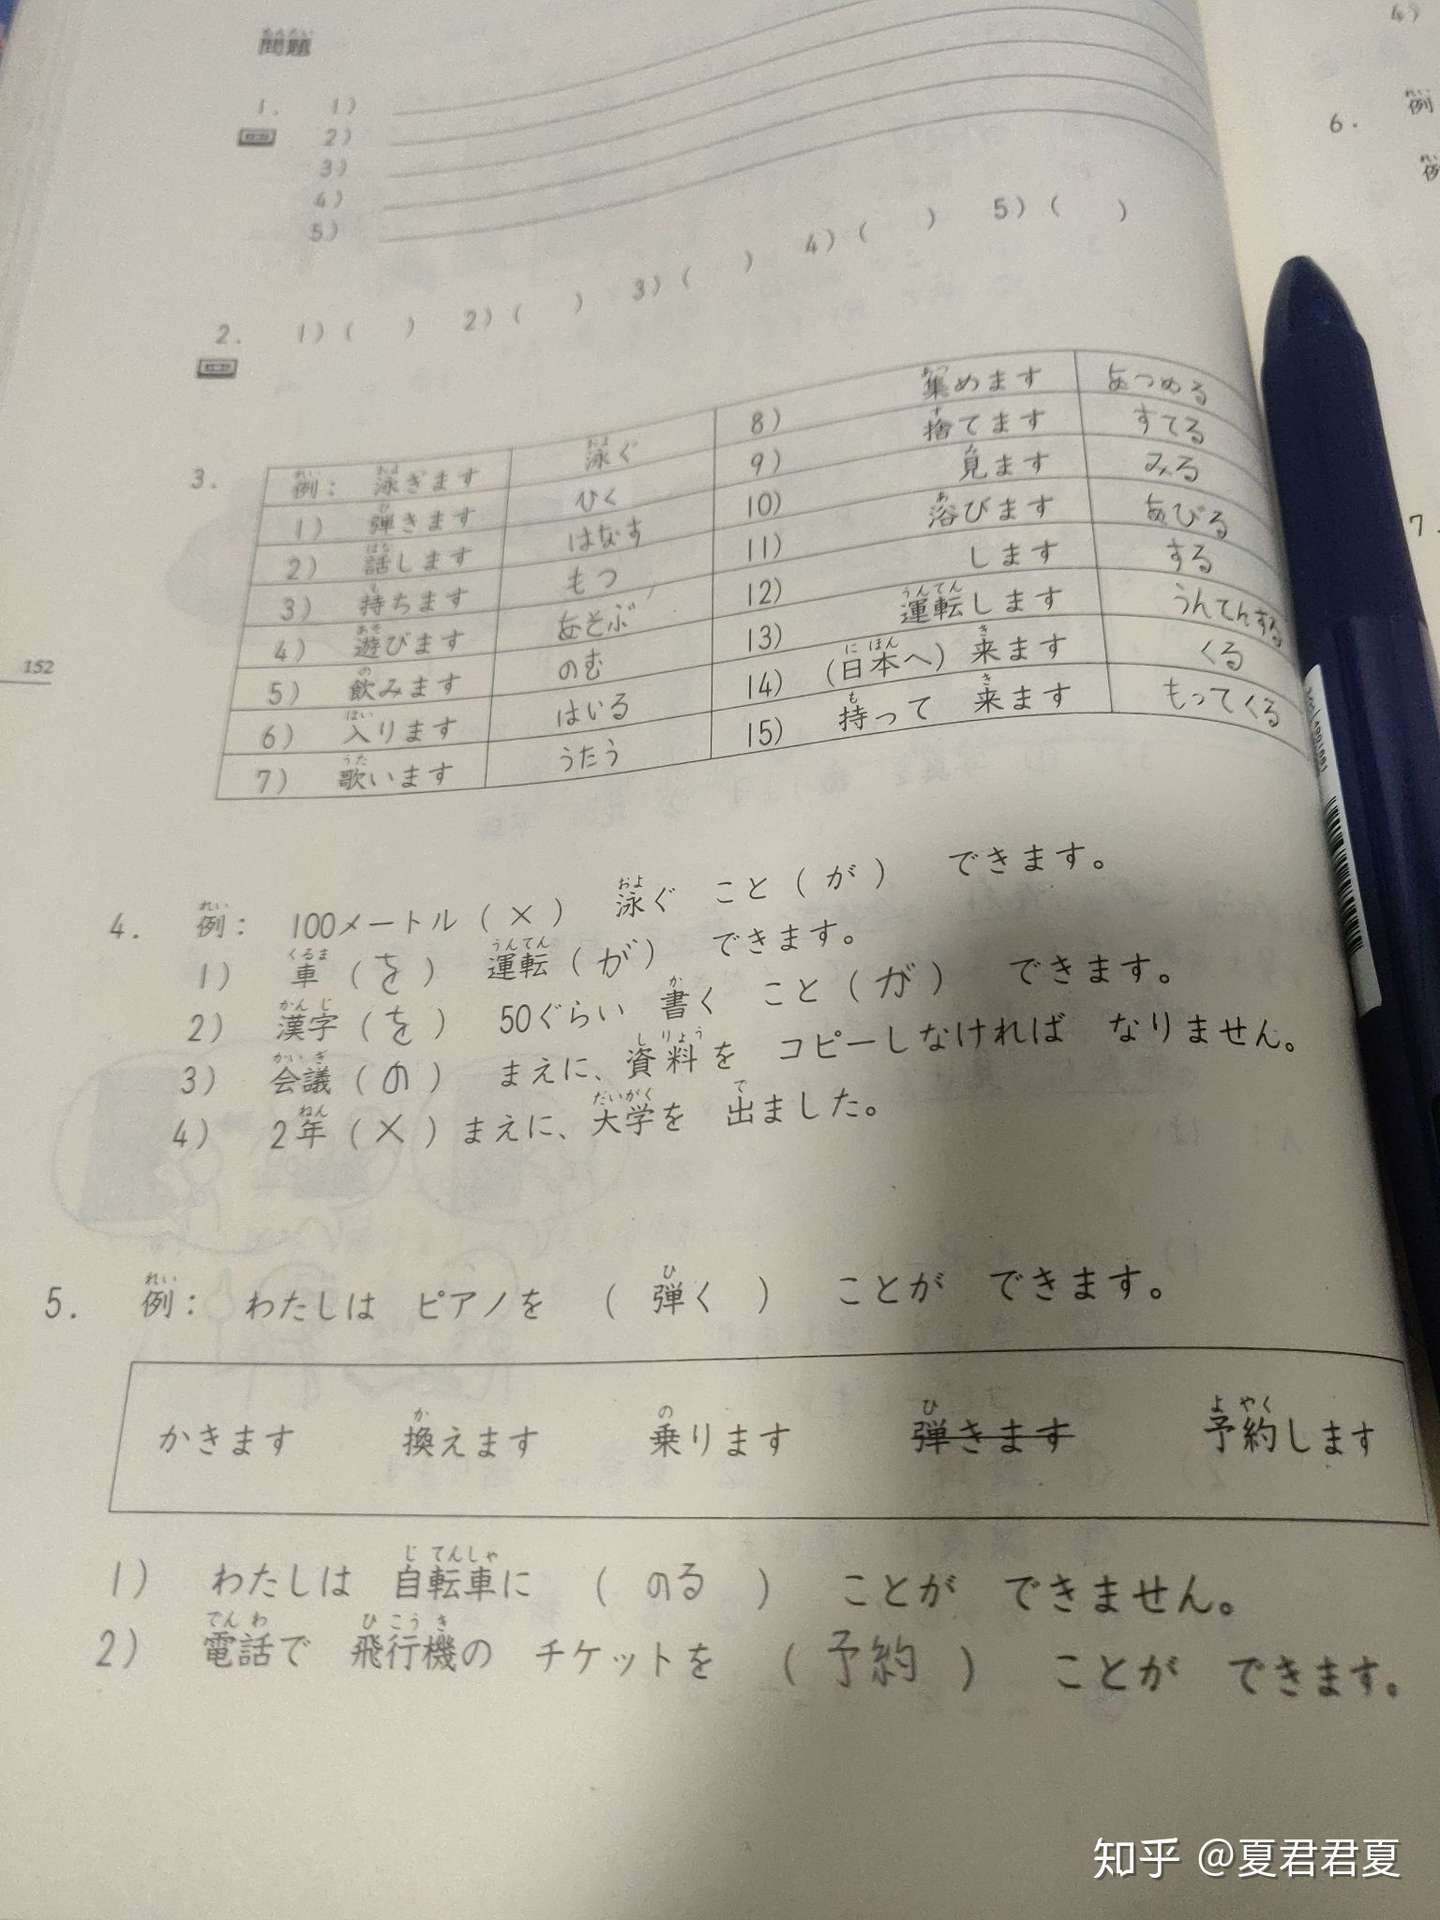 問題
1. 1)
2)
3)
4)
5)
2. 1) ( ) 2) ( ) 3) ( ) 4) ( ) 5) ( )
3. 例: 泳ぎます 泳ぐ
1) 弾きます ひく
2) 話します はなす
3) 持ちます もつ
4) 遊びます あそぶ
5) 飲みます のむ
6) 入ります はいる
7) 歌います うたう
8) 集めます あつめる
9) 捨てます すてる
10) 見ます みる
11) 浴びます あびる
12) します する
13) 運転します うんてんする
14) (日本へ) 来ます くる
15) 持って 来ます もってくる
152
4. 例: 100メートル (×) 泳ぐ こと (が) できます。
1) 車 (を) 運転 (が) できます。
2) 漢字 (を) 50ぐらい 書く こと (が) できます。
3) 会議 (の) まえに、資料を コピーしなければ なりません。
4) 2年 (×) まえに、大学を 出ました。
5. 例: わたしは ピアノを (弾く) ことが できます。
かきます 換えます 乗ります 弾きます 予約します
1) わたしは 自転車に (のる) ことが できません。
2) 電話で 飛行機の チケットを (予約) ことが できます。
4)
6. 例
例
7.
知乎 @夏君君夏